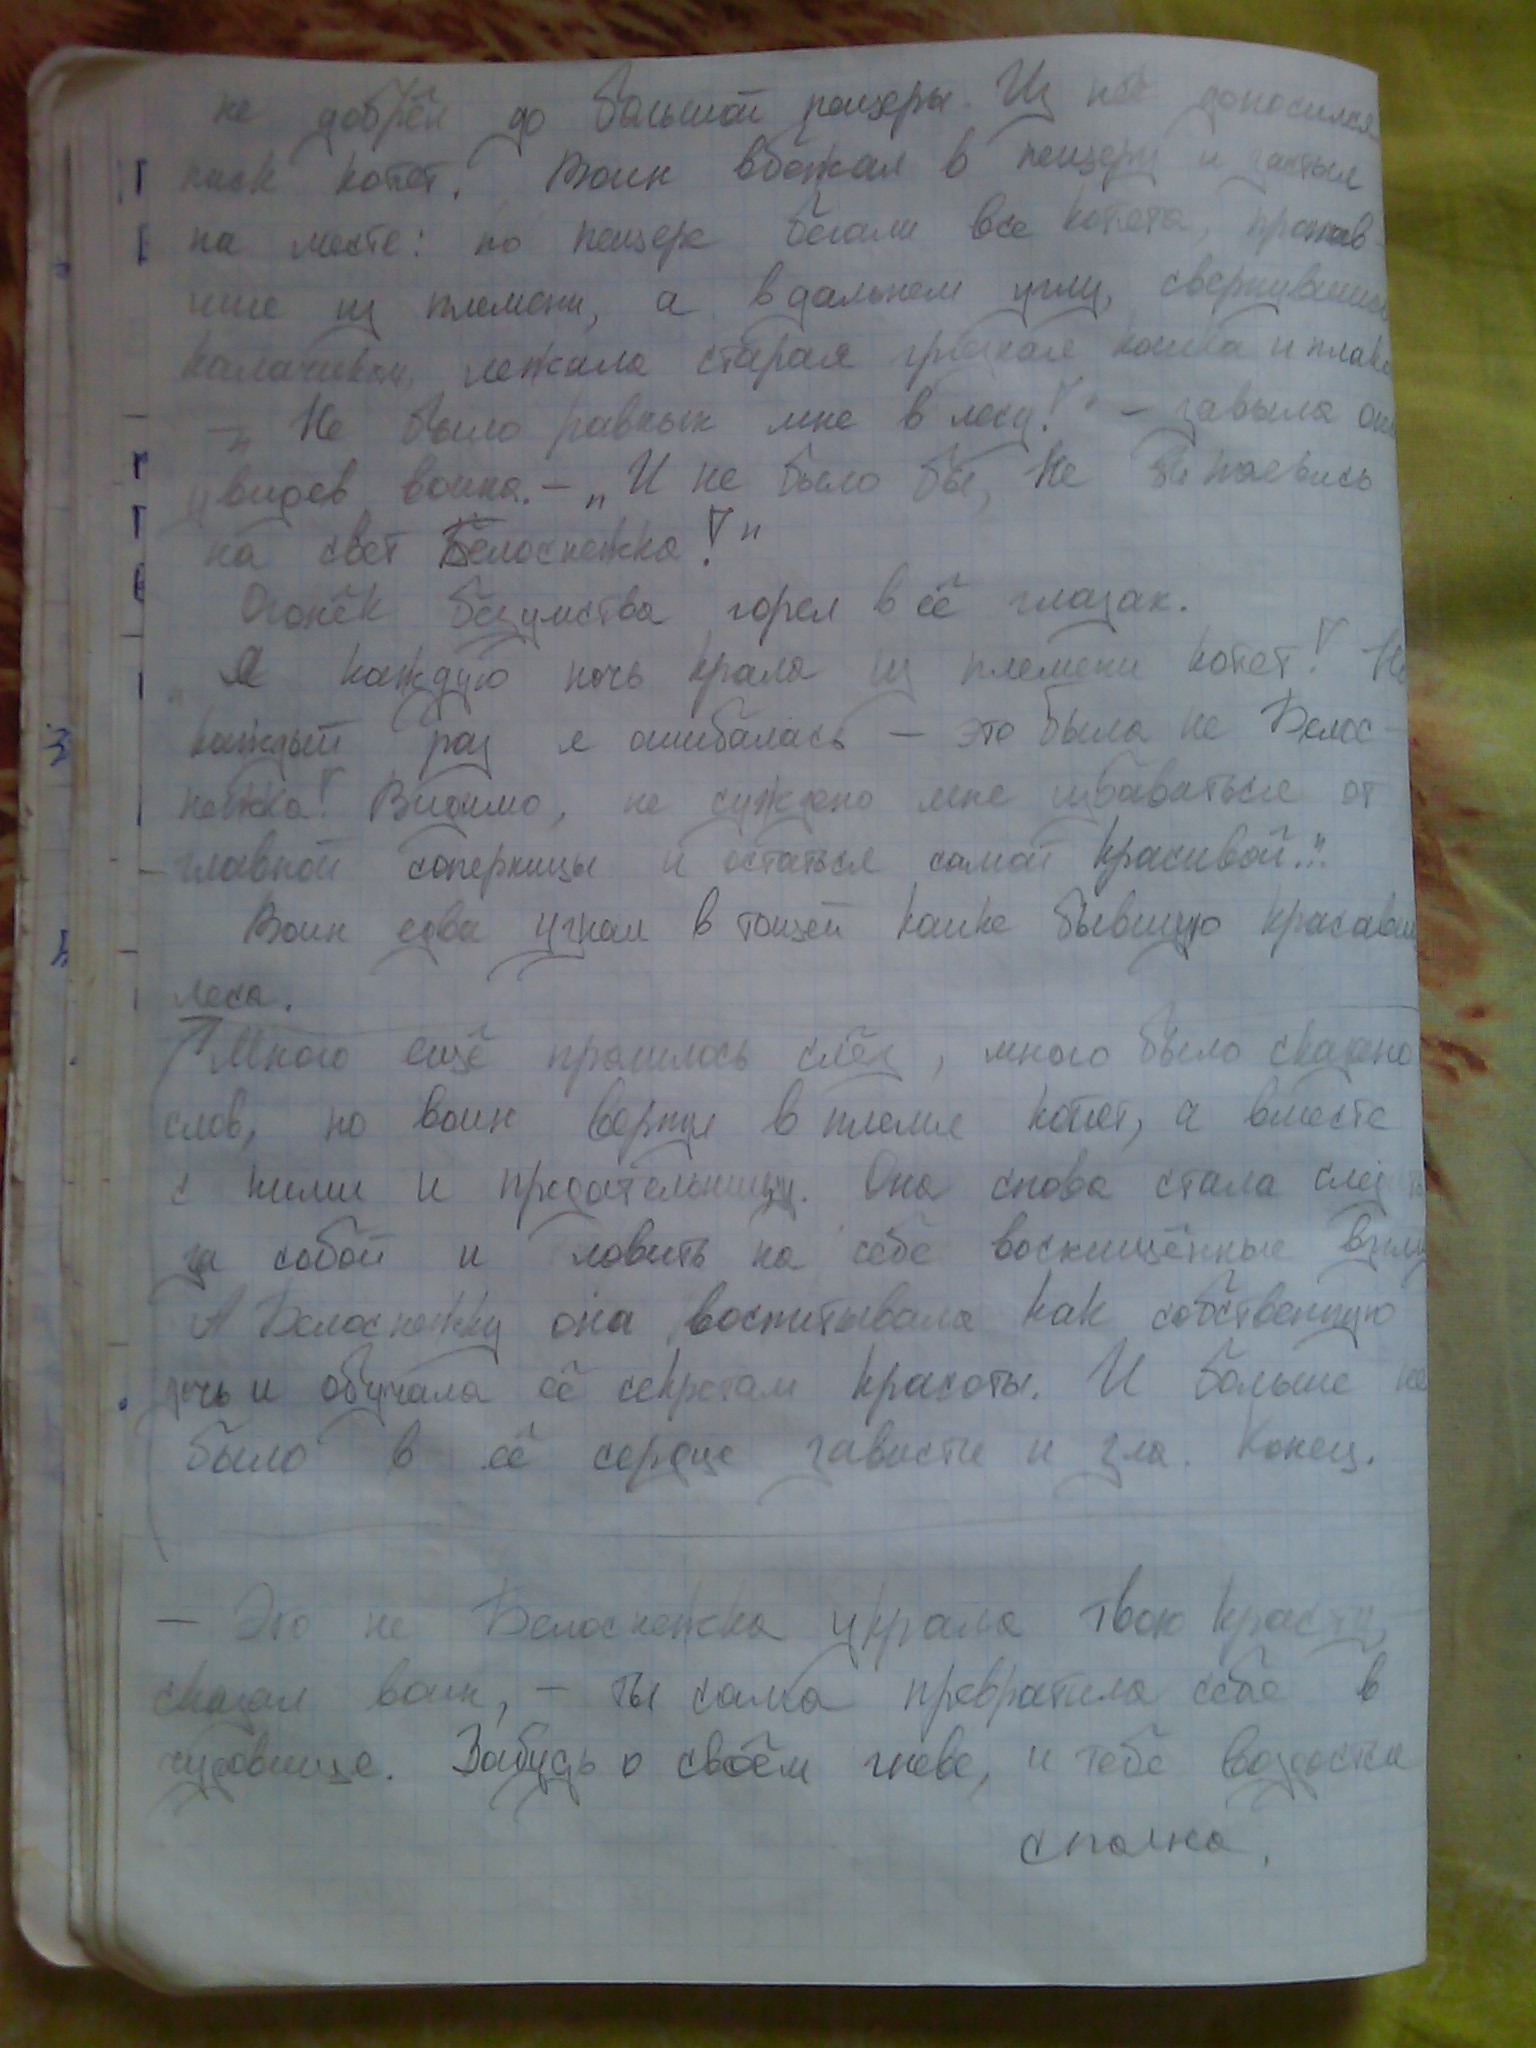 не добрёл до большой пещеры. Из неё доносился
писк котят. Воин вбежал в пещеру и застыл
на месте: по пещере бегали все котята, пропав-
шие из племени, а в дальнем углу, свернувшись
калачиком, лежала старая грязная кошка и плака
— „Не было равных мне в лесу!" – завыла она
увидев воина. – „И не было бы, не появись
на свет Белоснежка!"
Огонёк безумства горел в её глазах.
„Я каждую ночь крала из племени котят! Но
каждый раз я ошибалась – это была не Белос-
нежка! Видимо, не суждено мне избавиться от
главной соперницы и остаться самой красивой..."
Воин едва узнал в тощей кошке бывшую красавиц
леса.
Много ещё пролилось слёз, много было сказано
слов, но воин вернул в племя котят, а вместе
с ними и предательницу. Она снова стала следить
за собой и ловить на себе восхищённые взгля
А Белоснежку она воспитывала как собственную
дочь и обучала её секретам красоты. И больше не
было в её сердце зависти и зла. Конец.
— Это не Белоснежка украла твою красоту, –
сказал воин, – ты сама превратила себя в
чудовище. Забудь о своём гневе, и тебе воздастся
сполна.